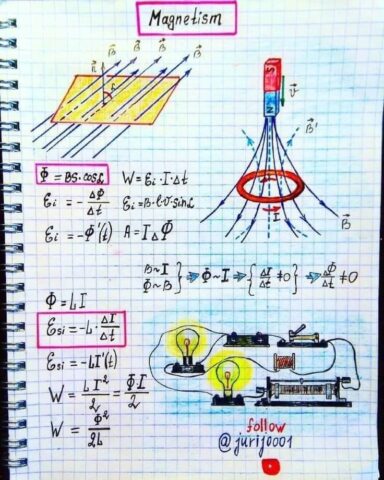 Magnetism
n⃗ B⃗ B⃗ B⃗ B⃗
α
S
N
v⃗
B⃗'
I
B⃗
Φ = BS·cosα W = Ɛi·I·Δt
Ɛi = - ΔΦ/Δt Ɛi = B·l·v·sinα
Ɛi = -Φ'(t) A = IΔΦ
B~I
Φ~B } ⇒ Φ~I ⇒ { ΔI/Δt ≠0 } ⇒ ΔΦ/Δt ≠0
Φ = LI
Ɛsi = -L· ΔI/Δt
Ɛsi = -LI'(t)
W = LI²/2 = Φ·I/2
W = Φ²/2L
follow
@jurij0001